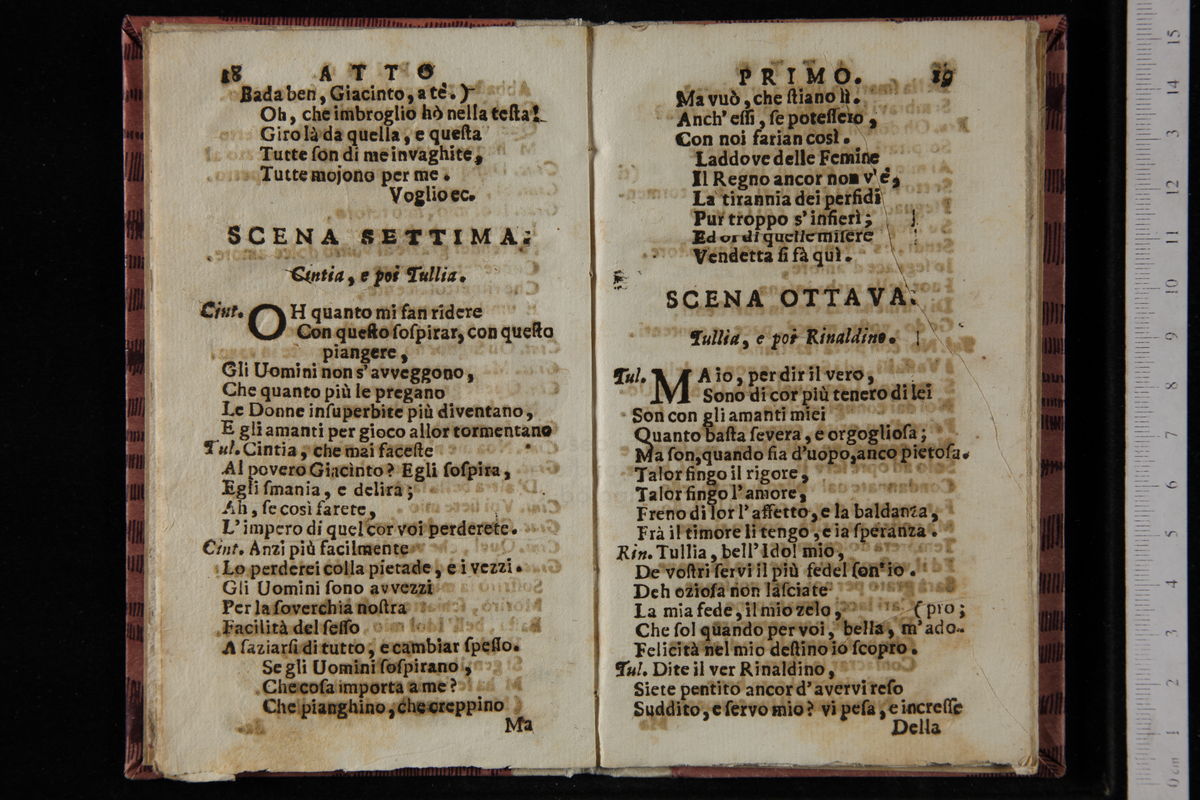 18 ATTO
Bada ben, Giacinto, a te. )
Oh, che imbroglio hò nella teſta!
Giro là da quella, e queſta
Tutte ſon di me invaghite,
Tutte mojono per me.
Voglio ec.
SCENA SETTIMA.
Cintia, e poi Tullia.
Cint. OH quanto mi fan ridere
Con queſto ſoſpirar, con queſto
piangere,
Gli Uomini non s'avveggono,
Che quanto più le pregano
Le Donne inſuperbite più diventano,
E gli amanti per gioco allor tormentano
Tul. Cintia, che mai faceſte
Al povero Giacinto? Egli ſoſpira,
Egli ſmania, e delira;
Ah, ſe così farete,
L'impero di quel cor voi perderete.
Cint. Anzi più facilmente
Lo perderei colla pietade, e i vezzi.
Gli Uomini ſono avvezzi
Per la ſoverchia noſtra
Facilità del ſeſſo
A ſaziarſi di tutto, e cambiar ſpeſſo.
Se gli Uomini ſoſpirano,
Che coſa importa a me?
Che pianghino, che creppino
Ma
PRIMO. 19
Ma vuò, che ſtiano lì.
Anch'eſſi, ſe poteſſero,
Con noi farian così.
Laddove delle Femine
Il Regno ancor non v'è,
La tirannia dei perfidi
Pur troppo s'infierì;
Ed or di quelle miſere
Vendetta ſi fà quì.
SCENA OTTAVA.
Tullia, e poi Rinaldino.
Tul. MA io, per dir il vero,
Sono di cor più tenero di lei
Son con gli amanti miei
Quanto baſta ſevera, e orgoglioſa;
Ma ſon, quando ſia d'uopo, anco pietoſa.
Talor fingo il rigore,
Talor fingo l'amore,
Freno di lor l'affetto, e la baldanza,
Frà il timore li tengo, e la ſperanza.
Rin. Tullia, bell'Idol mio,
De voſtri ſervi il più fedel ſon'io.
Deh ozioſa non laſciate
La mia fede, il mio zelo, (pro;
Che ſol quando per voi, bella, m'ado-
Felicità nel mio deſtino io ſcopro.
Tul. Dite il ver Rinaldino,
Siete pentito ancor d'avervi reſo
Suddito, e ſervo mio? vi peſa, e increſſe
Della